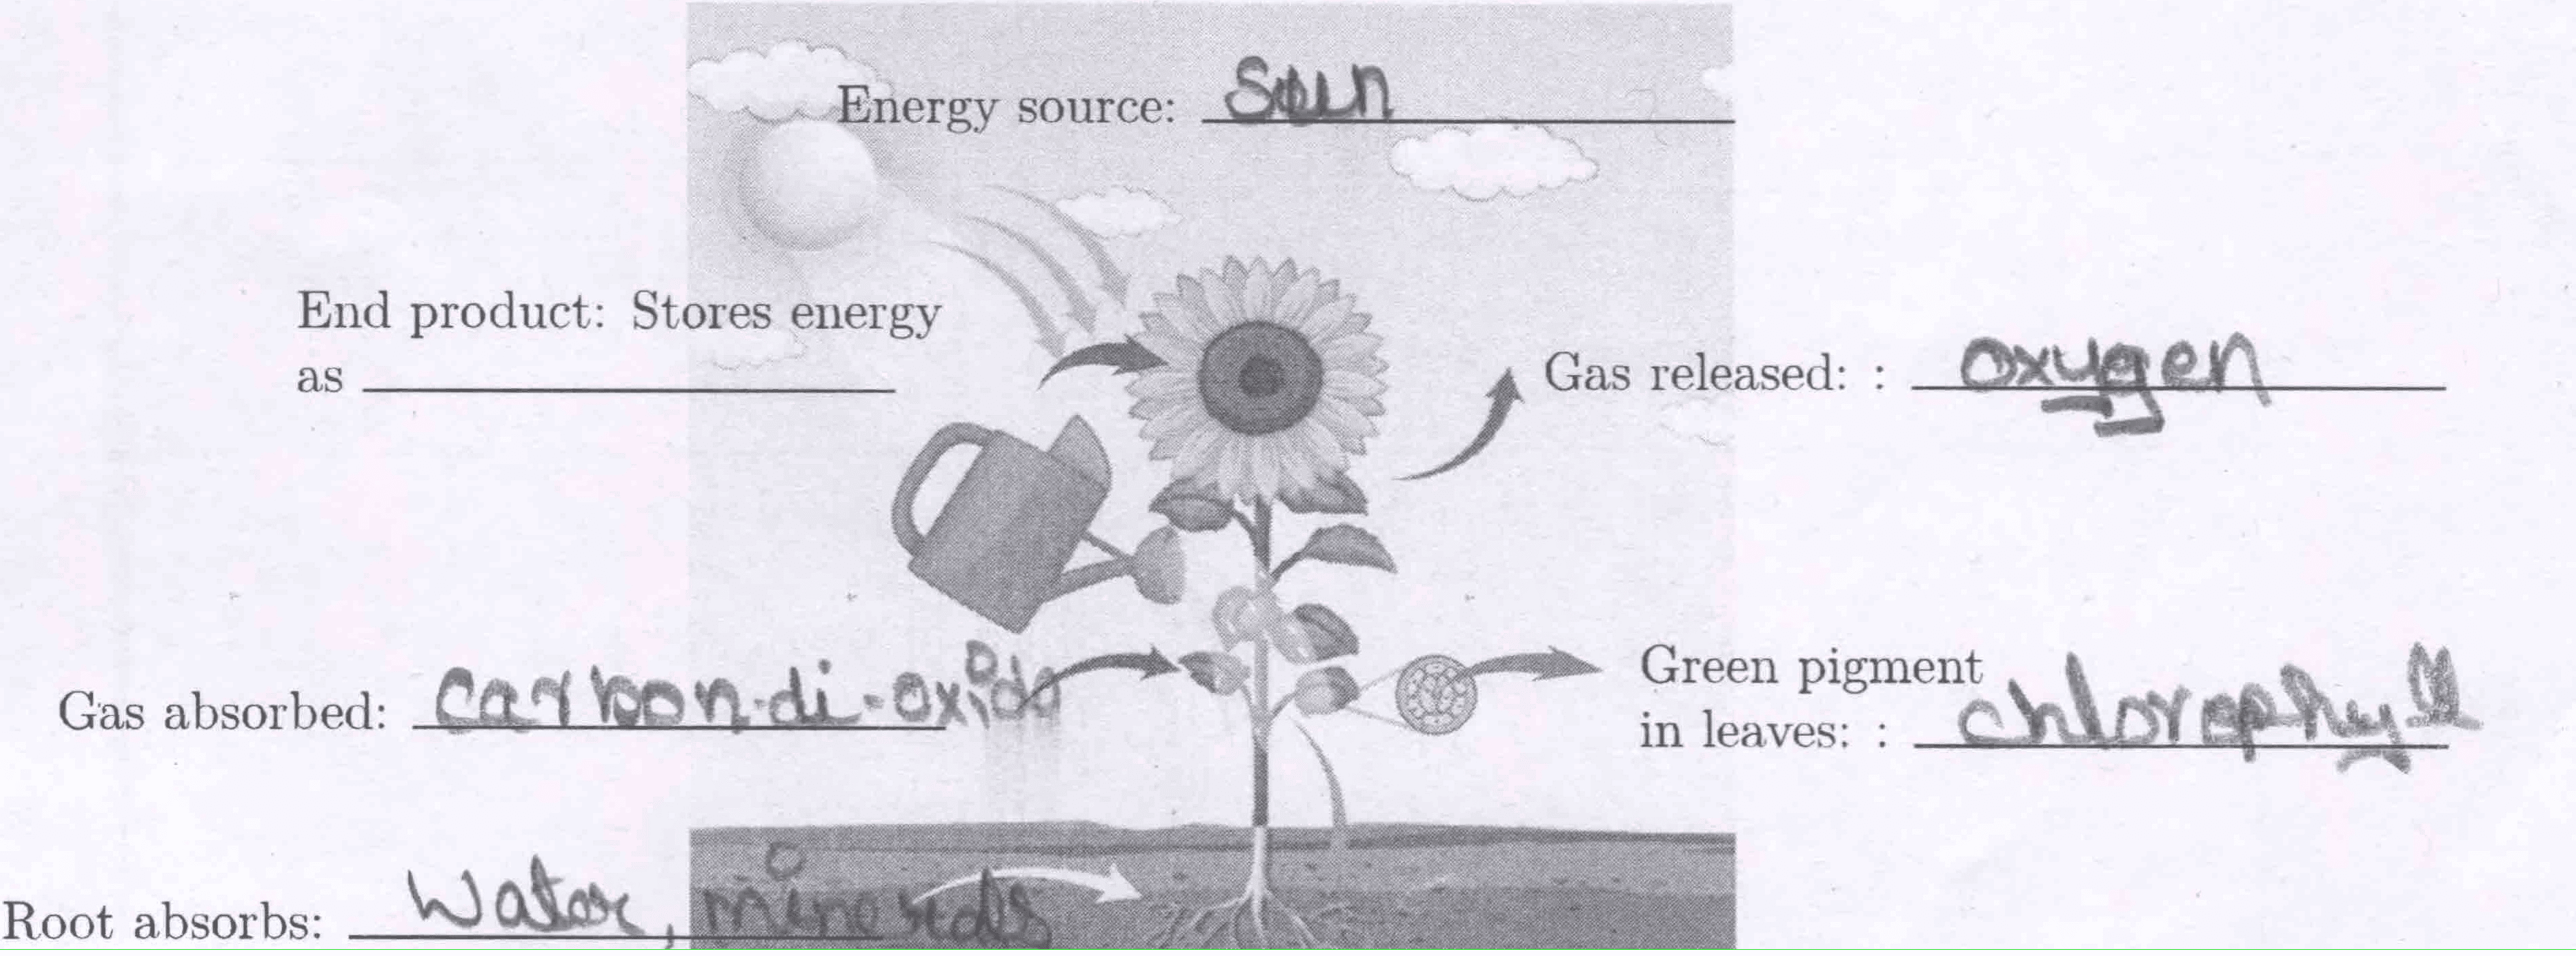 Energy source: Sun
End product: Stores energy
as
Gas released: : oxygen
Gas absorbed: carbon-di-oxide
Green pigment
in leaves: : chlorophyll
Root absorbs: Water, minerals